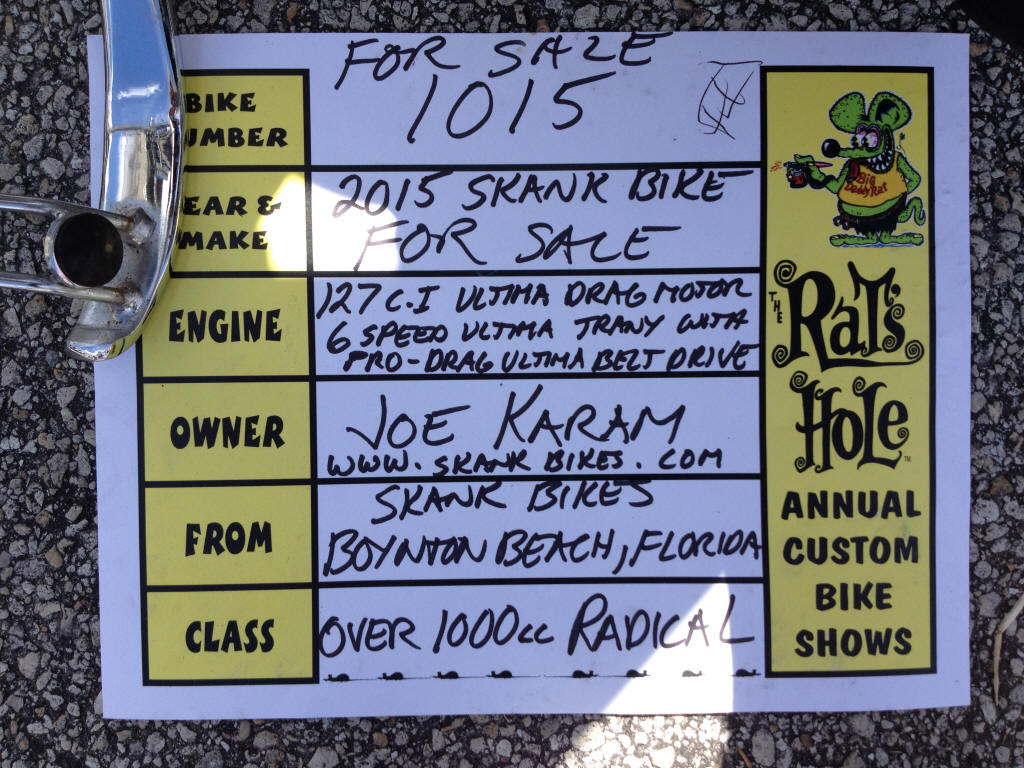 FOR SALE
BIKE
UMBER
1015
EAR &
MAKE
2015 SKANK BIKE
FOR SALE
ENGINE
127 C.I ULTIMA DRAG MOTOR
6 SPEED ULTIMA TRANY WITH
PRO-DRAG ULTIMA BELT DRIVE
OWNER
JOE KARAM
WWW.SKANKBIKES.COM
FROM
SKANK BIKES
BOYNTON BEACH, FLORIDA
CLASS
OVER 1000cc RADICAL
Big
Daddy Rat
THE
RAT'S
HOLE
TM
ANNUAL
CUSTOM
BIKE
SHOWS